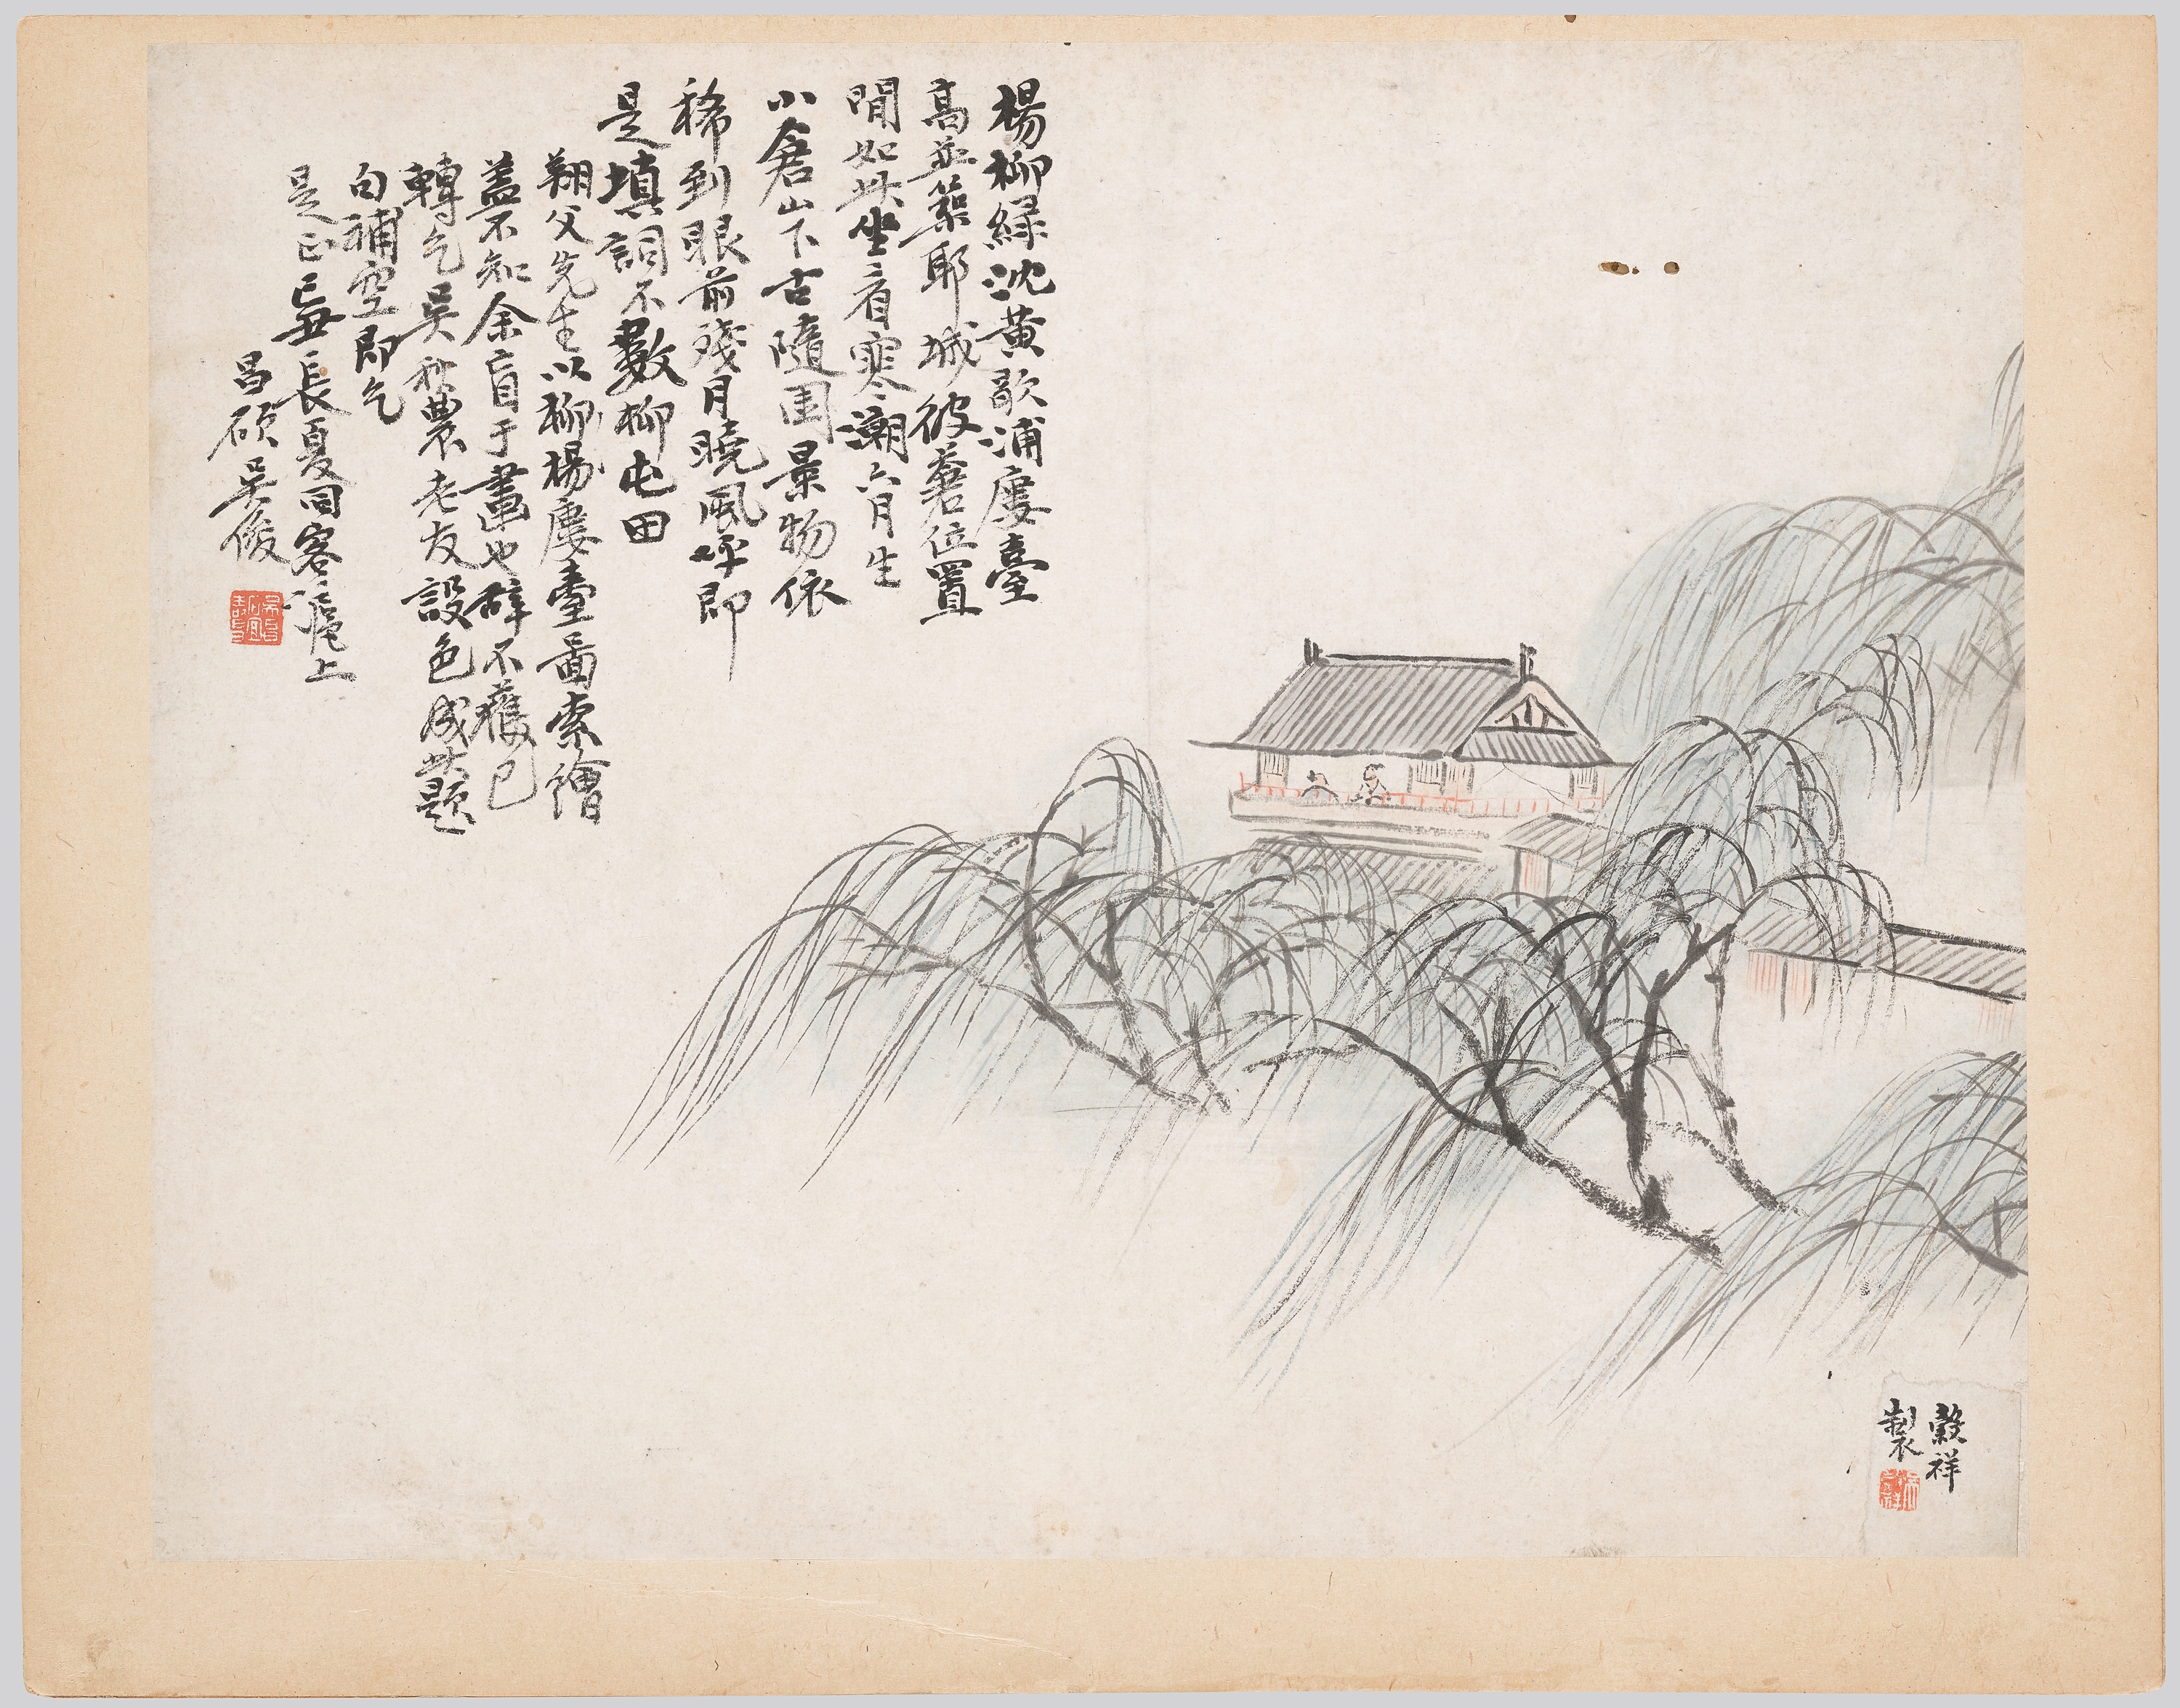 楊柳綠沈黃歇浦廔臺
高並築耶城彼蒼位置
閒如此坐看寒潮六月生
小倉山下古隨園景物依
稀到眼前殘月曉風呼即
是填詞不數柳屯田
翔父先生以柳楊廔臺圖索繪
蓋不知余盲于畫也辭不獲已
轉乞吳秋農老友設色成此題
句補空即乞
是正己丑長夏同客滬上
昌碩吳俊
穀祥
製